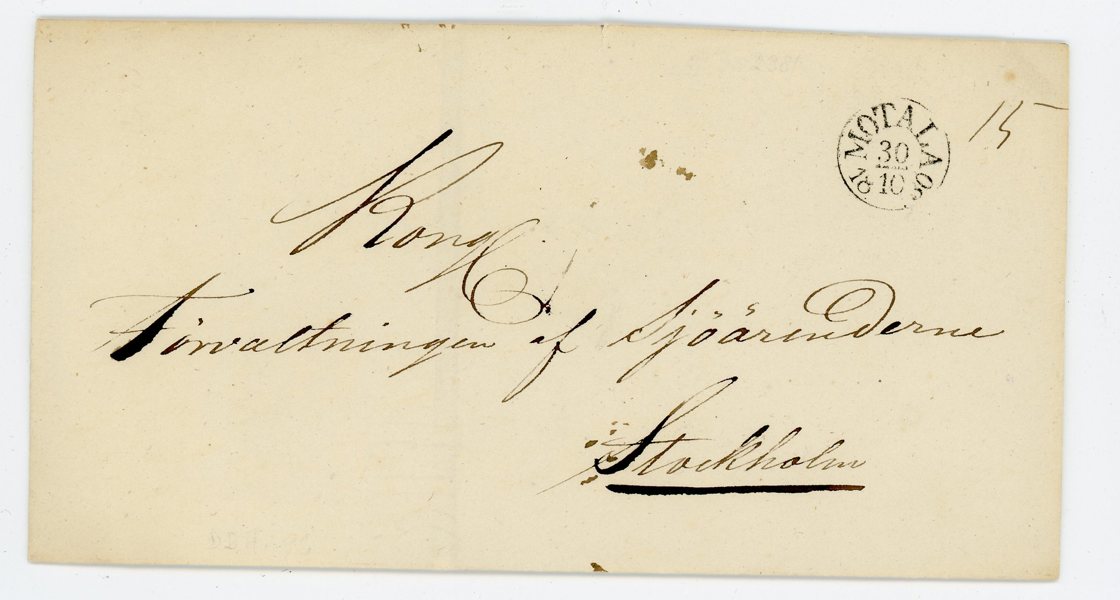 15
MOTALA
30
10
Kongl
Förvaltningen af Sjöärenderne
Stockholm